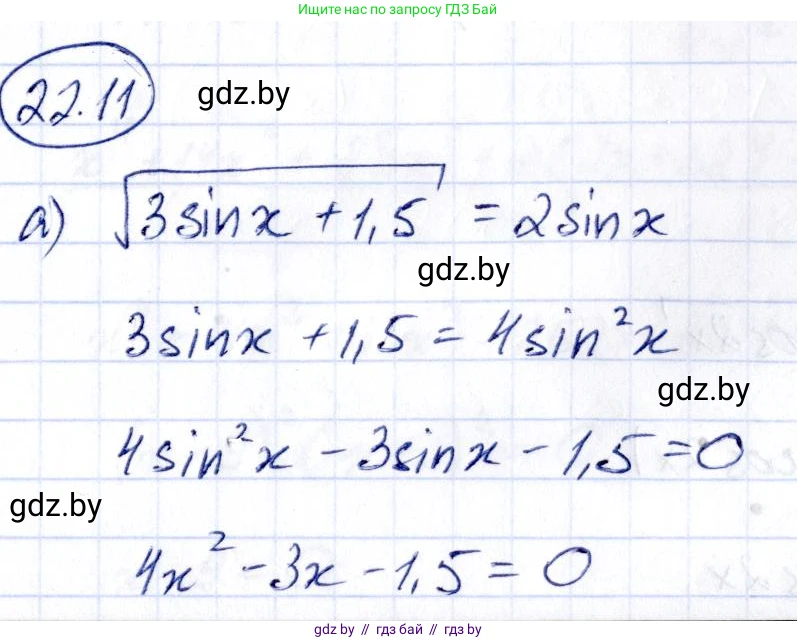 Ищите нас по запросу ГДЗ Бай
22.11
gdz.by
а) √(3sinx + 1,5) = 2sinx
gdz.by
3sinx + 1,5 = 4sin²x
gdz.by
4sin²x - 3sinx - 1,5 = 0
gdz.by
4x² - 3x - 1,5 = 0
gdz.by // гдз бай // гдз by